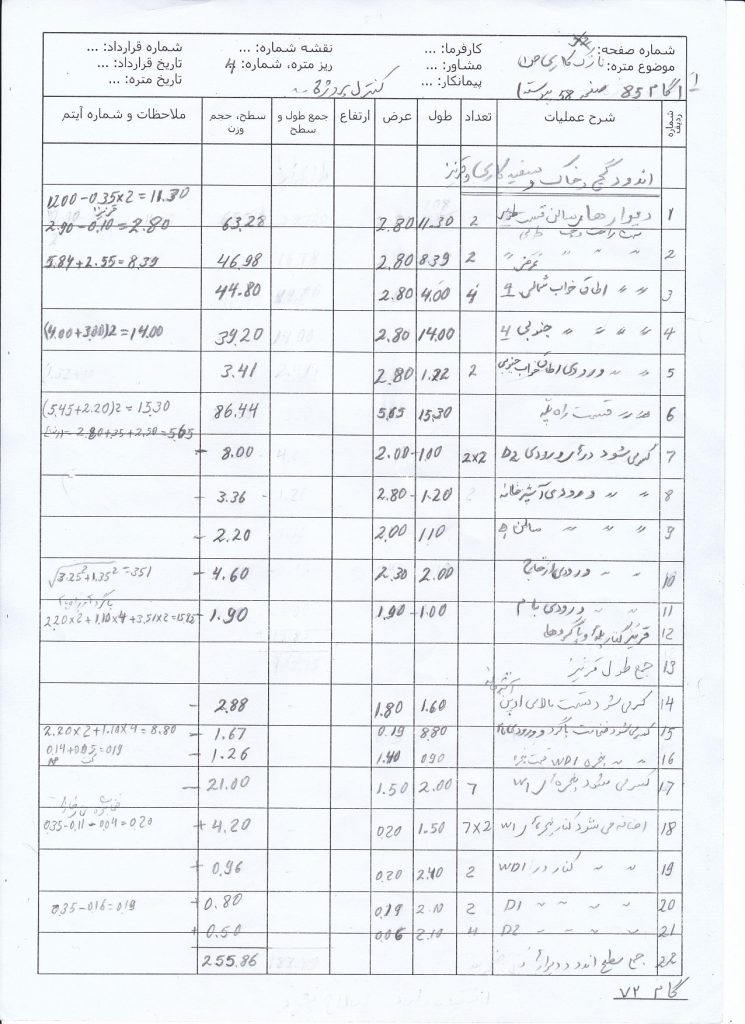 شماره صفحه:
موضوع متره: نازک کاری
کارفرما: ...
مشاور: ...
پیمانکار: ...
نقشه شماره: ...
ریز متره، شماره: 4
کنترل پروژه
شماره قرارداد: ...
تاریخ قرارداد: ...
تاریخ متره: ...
گام 85 صفحه 58
شماره ردیف شرح عملیات تعداد طول عرض ارتفاع جمع طول و سطح سطح، حجم وزن ملاحظات و شماره آیتم
اندود گچ و خاک و سفید کاری و قرنیز
1200 - 0.35x2 = 11.30
1 دیوارها سالن قسمت طولی 2 11.30 2.80 63.28 2.90 - 0.10 = 2.80
2 " " " عرض " 2 8.39 2.80 46.98 5.84 + 2.55 = 8.39
3 " " اطاق خواب شمالی 4 4.00 2.80 44.80
4 " " " " جنوبی 14.00 2.80 39.20 (4.00+3.00)2 = 14.00
5 " " ورودی اطاق خواب جنوبی 2 1.22 2.80 3.41
6 " " قسمت راه پله 15.30 5.65 86.44 (5.45+2.20)2 = 15.30
2.80+.35+2.50=5.65
7 کسر می شود درهای ورودی D2 2x2 1.00 2.00 - 8.00
8 " " ورودی آشپزخانه 1.20 2.80 - 3.36
9 " " " سالن 1.10 2.00 - 2.20
10 " " ورودی از خارج 2.00 2.30 - 4.60 √3.25²+1.35² = 3.51
11 " " ورودی بام 1.00 1.90 - 1.90 2.20x2+1.10x4+3.51x2=15.85
12 قرنیز کنار پله و پاگردها
13 جمع طول قرنیز
14 کسر می شود قسمت بالای اوپن آشپزخانه 1.60 1.80 - 2.88
15 کسر می شود ضخامت پاگرد و ورودی 8.80 0.19 - 1.67 2.20x2+1.10x4 = 8.80
16 " " پنجره WD1 0.90 1.40 - 1.26 0.14+0.05=0.19
17 کسر می شود پنجره های W1 7 2.00 1.50 - 21.00
18 اضافه می شود کنار پنجره های W1 7x2 1.50 0.20 + 4.20 0.35-0.11-0.04=0.20
19 " " کنار در WD1 2 2.40 0.20 + 0.96
20 " " " " D1 2 2.10 0.19 + 0.80 0.35-0.16=0.19
21 " " " " D2 4 2.10 0.06 + 0.50
22 جمع سطح اندود دیوارها 255.86
گام ۷۲